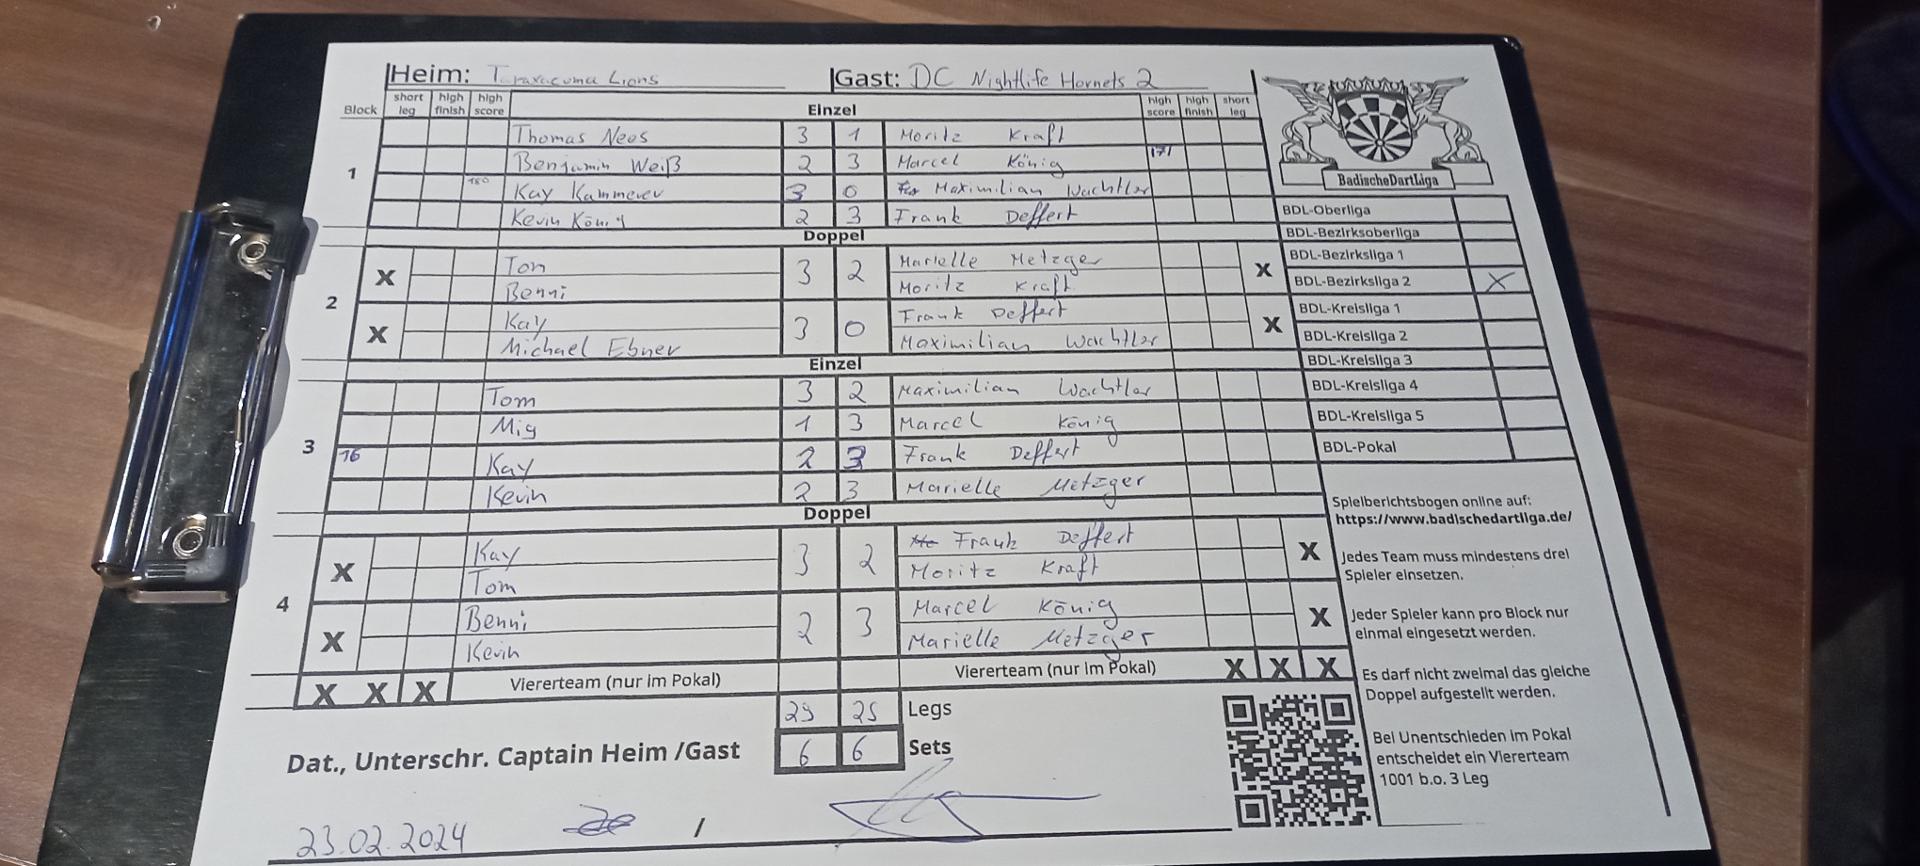 Heim: Taraxacuma Lions Gast: DC Nightlife Hornets 2
Block short leg high finish high score Einzel high score high finish short leg
1
Thomas Nees 3 1 Moritz Kraft
Benjamin Weiß 2 3 Marcel König 171
180 Kay Kammerer 3 0 Maximilian Wachtler
Kevin König 2 3 Frank Deffert
Doppel
2
X Tom 3 2 Marielle Metzger X
Benni Moritz Kraft
X Kay 3 0 Frank Deffert X
Michael Ebner Maximilian Wachtler
Einzel
3
Tom 3 2 Maximilian Wachtler
Mig 1 3 Marcel König
16 Kay 2 3 Frank Deffert
Kevin 2 3 Marielle Metzger
Doppel
4
X Kay 3 2 Frank Deffert X
Tom Moritz Kraft
X Benni 2 3 Marcel König X
Kevin Marielle Metzger
X X X Viererteam (nur im Pokal) Viererteam (nur im Pokal) X X X
29 25 Legs
Dat., Unterschr. Captain Heim /Gast 6 6 Sets
23.02.2024 /
BadischeDartLiga
BDL-Oberliga
BDL-Bezirksoberliga
BDL-Bezirksliga 1
BDL-Bezirksliga 2 X
BDL-Kreisliga 1
BDL-Kreisliga 2
BDL-Kreisliga 3
BDL-Kreisliga 4
BDL-Kreisliga 5
BDL-Pokal
Spielberichtsbogen online auf:
https://www.badischedartliga.de/
Jedes Team muss mindestens drei
Spieler einsetzen.
Jeder Spieler kann pro Block nur
einmal eingesetzt werden.
Es darf nicht zweimal das gleiche
Doppel aufgestellt werden.
Bei Unentschieden im Pokal
entscheidet ein Viererteam
1001 b.o. 3 Leg